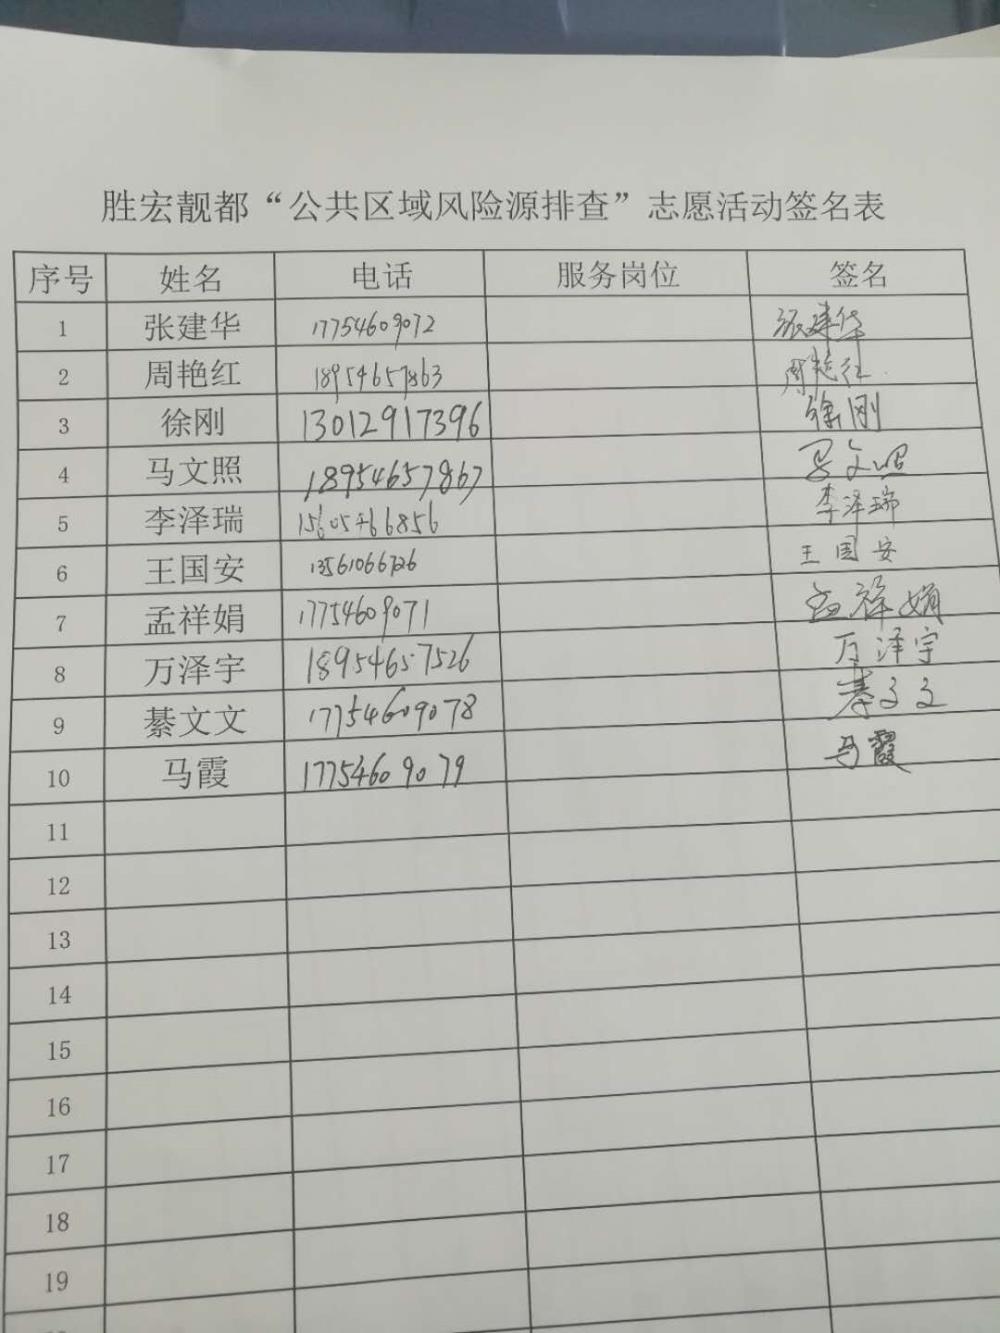 胜宏靓都“公共区域风险源排查”志愿活动签名表
序号 姓名 电话 服务岗位 签名
1 张建华 17754609072 张建华
2 周艳红 18954657863 周艳红
3 徐刚 13012917396 徐刚
4 马文照 18954657867 马文照
5 李泽瑞 15605466856 李泽瑞
6 王国安 13561066726 王国安
7 孟祥娟 17754609071 孟祥娟
8 万泽宇 18954657526 万泽宇
9 綦文文 17754609078 綦文文
10 马霞 17754609079 马霞
11
12
13
14
15
16
17
18
19